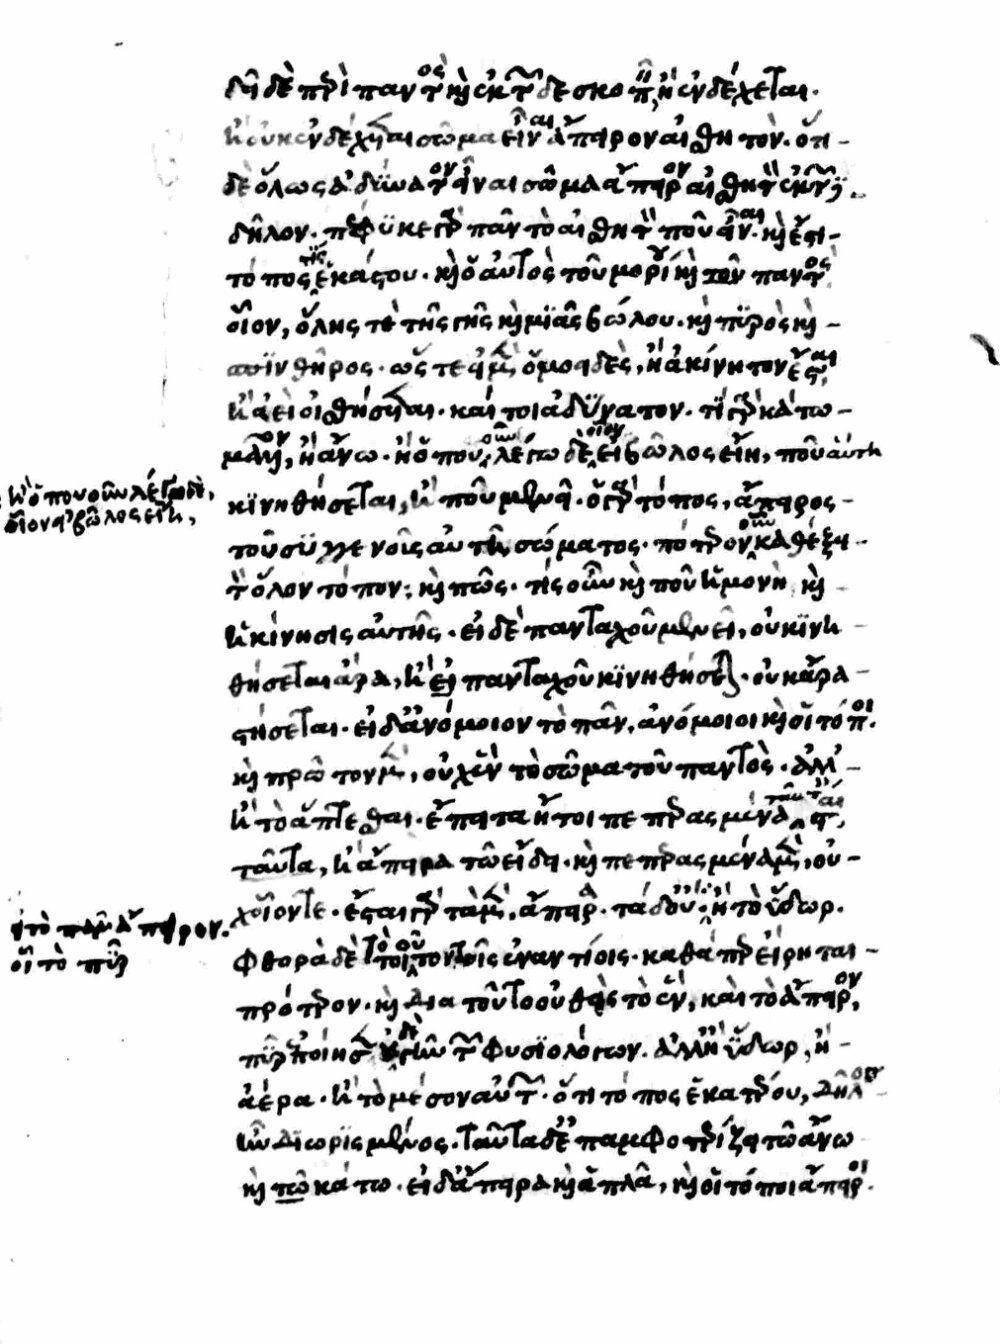 δεῖ δὲ περὶ παντὸς καὶ ἐκ τῶνδε σκοπεῖν, εἰ ἐνδέχεται.
ἢ οὐκ ἐνδέχεται σῶμα εἶναι ἄπειρον αἰσθητὸν. ὅτι
δὲ ὅλως ἀδύνατον εἶναι σῶμα ἄπειρον αἰσθητὸν ἐκ τῶν
δῆλον. πέφυκε γὰρ πᾶν τὸ αἰσθητὸν ποῦ εἶναι. καὶ ἔστι
τόπος τίς ἑκάστου. καὶ ὁ αὐτὸς τοῦ μορίου καὶ τοῦ παντὸς
οἷον, ὅλης τὲ τῆς γῆς καὶ μιᾶς βώλου. καὶ πυρὸς καὶ
σπινθῆρος. ὥστε εἰ μὲν ὁμοειδὲς, ἢ ἀκίνητον ἔσται,
ἢ ἀεὶ οἰσθήσεται. καίτοι ἀδύνατον. τί γὰρ κάτω
μᾶλλον, ἢ ἄνω. ἢ ὅπου οὖν λέγω δὲ οἷον εἰ βῶλος εἴη, ποῦ αὐτὴ
ἢ ὅπου οὖν λέγω δὲ,
οἷον εἰ βῶλος εἴη,
κινηθήσεται, ἢ ποῦ μενεῖ. ὁ γὰρ τόπος, ἄπειρος
τοῦ συγγενοῖς αὐτῆ σώματος. πότερον οὖν καθέξει
τὸν ὅλον τόπον; καὶ πῶς. τίς οὖν καὶ ποῦ ἡ μονὴ, καὶ
ἡ κίνησις αὐτῆς. εἰ δὲ πανταχοῦ μενεῖ, οὐ κινη
θήσεται ἄρα, ἢ εἰ πανταχοῦ κινηθήσεται. οὐκ ἄρα
στήσεται. εἰ δ' ἀνόμοιον τὸ πᾶν, ἀνόμοιοι καὶ οἱ τόποι.
καὶ πρῶτον μὲν, οὐχ ἓν τὸ σῶμα τοῦ παντὸς. ἀλλ'
ἢ τὸ ἅπτεσθαι. ἔπειτα ἤτοι πεπερασμένα ταῦτα ἔσται,
ταῦτα, ἢ ἄπειρα τῶ εἴδει. καὶ πεπερασμένα μὲν, οὐ
χ οἷόν τε. ἔσται γὰρ τὰ μὲν, ἄπειρα. τὰ δ' οὔ. ἢ τὸ ὕδωρ.
εἰ τὸ πᾶν ἄπειρον.
οἷον τὸ πῦρ
φθορὰ δὲ τὸ τοιοῦτον τοῖς ἐναντίοις. καθάπερ εἴρηται
πρότερον. καὶ διὰ τοῦτο οὐθεὶς τὸ ἓν, καὶ τὸ ἄπειρον,
πῦρ ἐποίησεν οὐδὲ γῆν τῶν φυσιολόγων. ἀλλ' ἢ ὕδωρ, ἢ
ἀέρα. ἢ τὸ μέσον αὐτῶν. ὅτι τόπος ἑκατέρου, δῆλος
ἦν διωρισμένος. ταῦτα δὲ ἐπαμφοτερίζει τῶ ἄνω
καὶ τῶ κάτω. εἰ δ' ἄπειρα καὶ ἁπλᾶ, καὶ οἱ τόποι ἄπειροι.